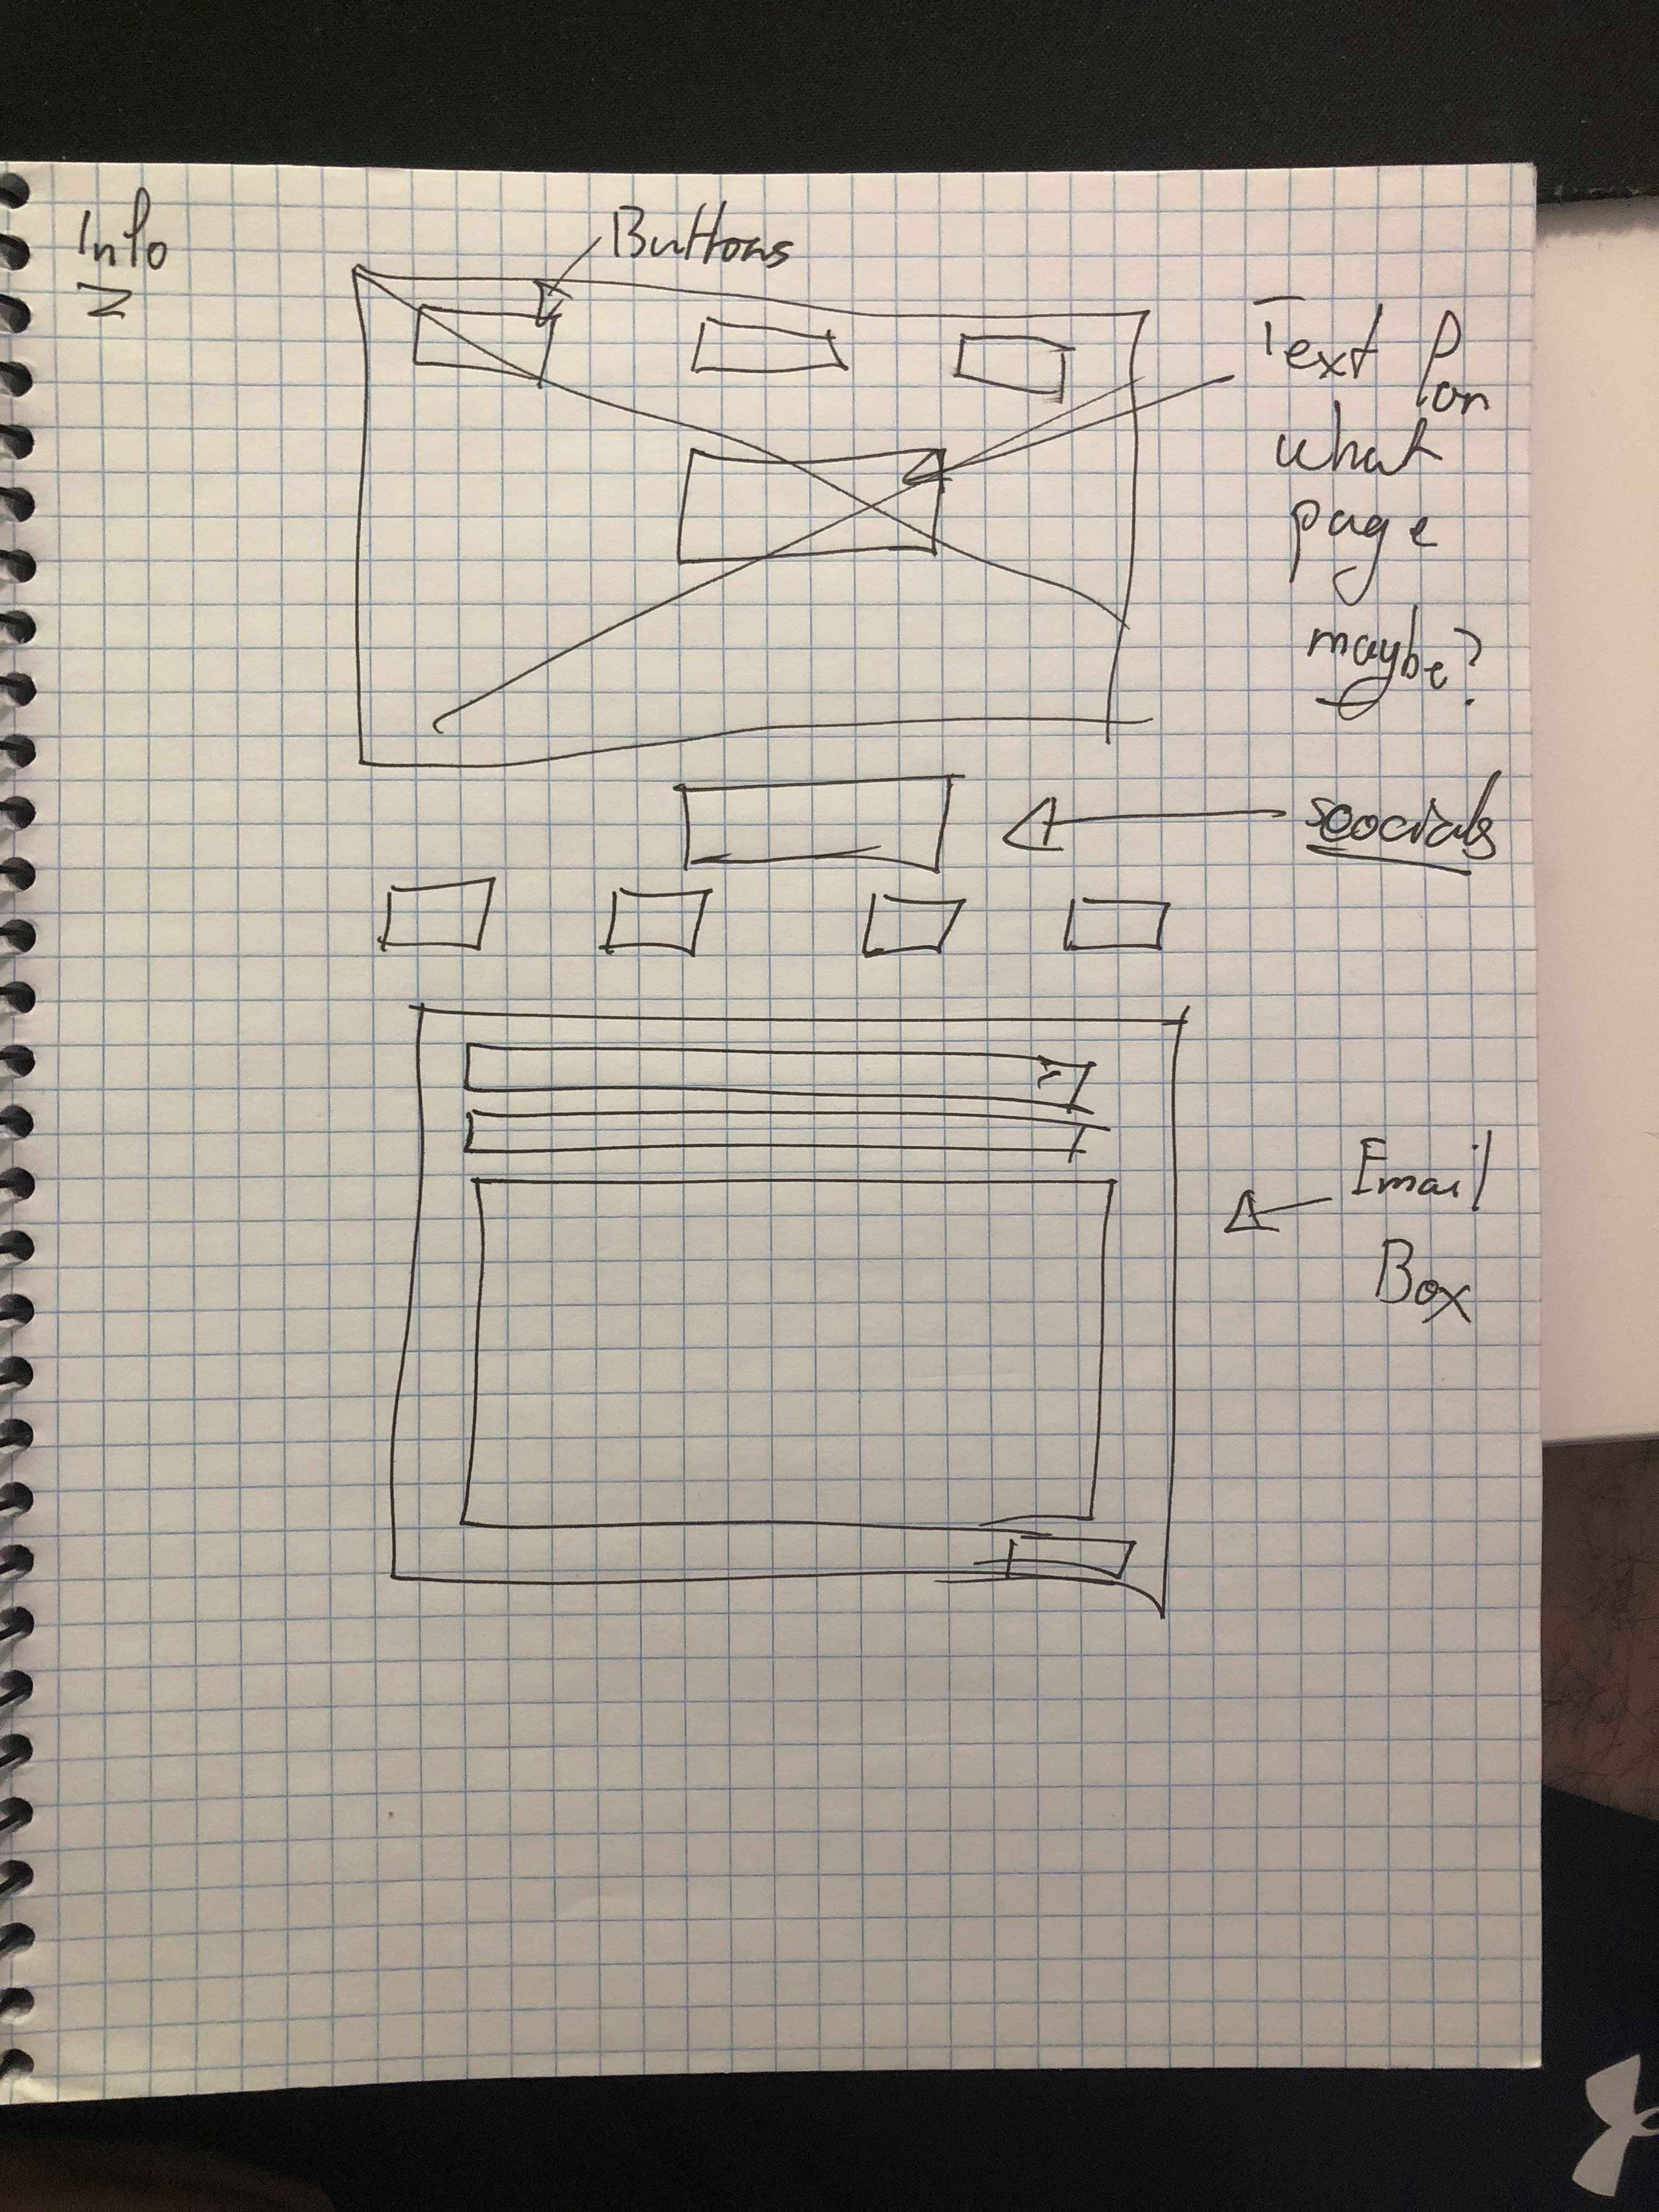 Info
Buttons
Text for
what
page
maybe?
socials
Email
Box